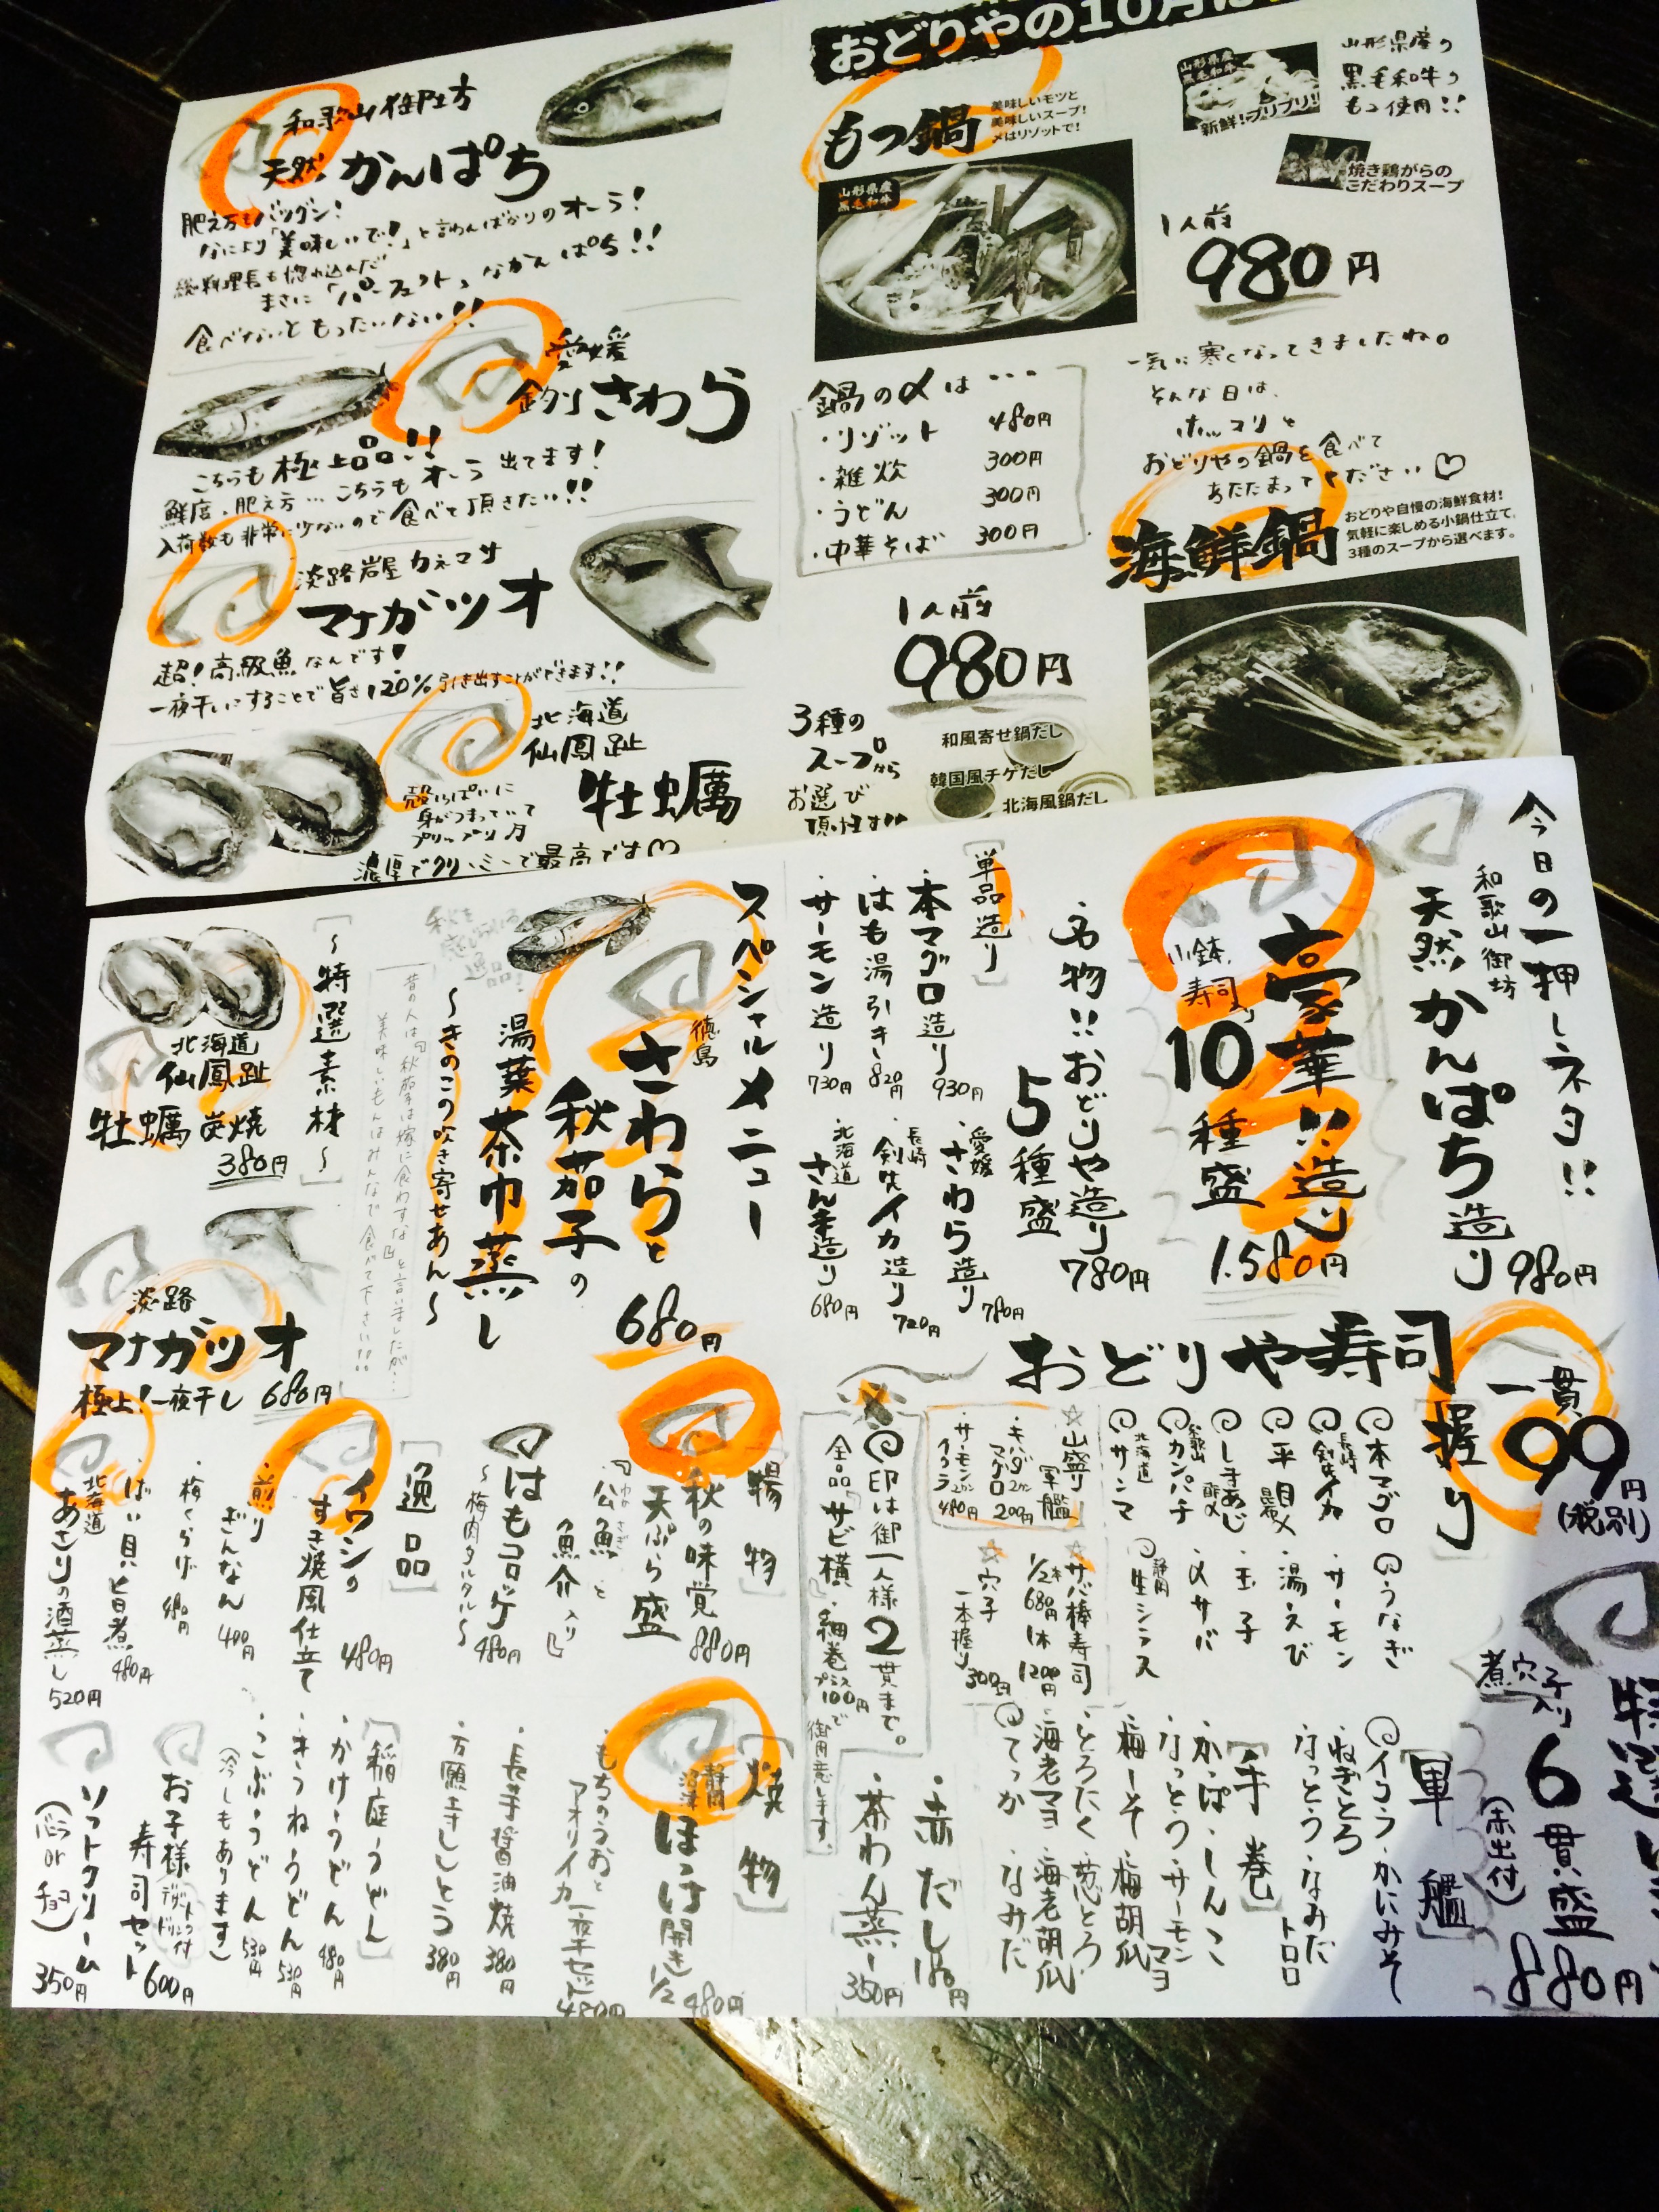 和歌山御坊
天然 かんぱち
肥え方もバツグン!
なにより「美味しいで!」と言わんばかりのオーラ!
総料理長も惚れ込んだ
まさに「パーフェクト」なかんぱち!!
食べないともったいない!!
愛媛
釣りさわら
こちらも極上品!!
鮮度、肥え方…こちらもオーラ出てます!
入荷数も非常に少ないので食べて頂きたい!!
淡路岩屋カネマサ
マナガツオ
超!高級魚なんです!
一夜干しにすることで旨さ120%引き出すことができます!!
北海道
仙鳳趾
牡蠣
殻いっぱいに
身がつまっていて
プリップリ
濃厚でクリーミーで最高です♡
おどりやの10月は
もつ鍋
美味しいモツと
美味しいスープ!
〆はリゾットで!
山形県産
黒毛和牛
山形県産
黒毛和牛
新鮮!プリプリ!!
山形県産の
黒毛和牛の
もつ使用!!
焼き鶏がらの
こだわりスープ
1人前
980円
鍋の〆は…
・リゾット 480円
・雑炊 300円
・うどん 300円
・中華そば 300円
一気に寒くなってきましたね。
そんな日は、
ホッコリと
おどりやの鍋を食べて
あたたまってください♡
海鮮鍋
おどりや自慢の海鮮食材!
気軽に楽しめる小鍋仕立て。
3種のスープから選べます。
1人前
980円
3種の
スープから
お選び
頂けます!!
和風寄せ鍋だし
韓国風チゲだし
北海風鍋だし
今日の一押しネタ!!
和歌山御坊
天然かんぱち造り 980円
豪華!!造り
小鉢、寿司
10種盛 1,580円
名物!!おどりや造り
5種盛 780円
[単品造り]
・本マグロ造り 930円
・はも湯引き 820円
・サーモン造り 730円
・愛媛 さわら造り 780円
・長崎 剣先イカ造り 720円
・北海道 さんま造り 680円
おどりや寿司
一貫 99円(税別)
[握り]
本マグロ
長崎 剣先イカ
・平目
しまあじ
和歌山 カンパチ
北海道 サンマ
うなぎ
・サーモン
・湯えび
・玉子
・〆サバ
静岡 生シラス
☆山盛り軍艦
・キハダマグロ 2カン 200円
・サーモンイクラ 2カン 480円
☆サバ棒寿司
1/2本 680円 1本 1200円
☆穴子
一本握り 300円
印は御一人様2貫まで。
全品『サビ横』・細巻プラス100円で
御用意します。
特選にぎり
煮穴子入り
6貫盛
(赤出付)
880円
[軍艦]
イクラ・かにみそ
・ねぎとろ
・なっとう・なみだトロロ
[手巻]
・かっぱ・しんこ
・なっとう・サーモンマヨ
・梅しそ・梅胡瓜
・とろたく・葱とろ
・海老マヨ・海老胡瓜
てっか・なみだ
・赤だし 180円
・茶わん蒸し 350円
スペシャルメニュー
徳島
さわらと
秋茄子の
湯葉茶巾蒸し
680円
～きのこの吹き寄せあん～
秋を
感じられる
逸品!
昔の人は『秋茄子は嫁に食わすな』と言いましたが…
美味しいもんはみんなで食べて下さい!!!
[～特選素材～]
北海道
仙鳳趾
牡蠣 炭焼
380円
淡路
マナガツオ
極上!一夜干し 680円
[揚物]
秋の味覚
天ぷら盛 880円
『公魚と
わかさぎ
魚介入り』
はもコロッケ
～梅肉タルタル～ 480円
[逸品]
イワシの
すき焼風仕立て 480円
・煎りぎんなん 400円
・梅くらげ
・ばい貝旨煮 480円
北海道
あさりの酒蒸し 520円
[焼物]
静岡 沼津
ほっけ開き 1/2 480円
・もちのうおと
アオリイカ一夜干セット 480円
・長芋醤油焼 380円
・万願寺ししとう 380円
[稲庭うどん]
・かけうどん 480円
・きつねうどん 530円
・こぶうどん 530円
(冷しもあります)
お子様
寿司セット 600円
ソフトクリーム
(バニラorチョコ) 350円